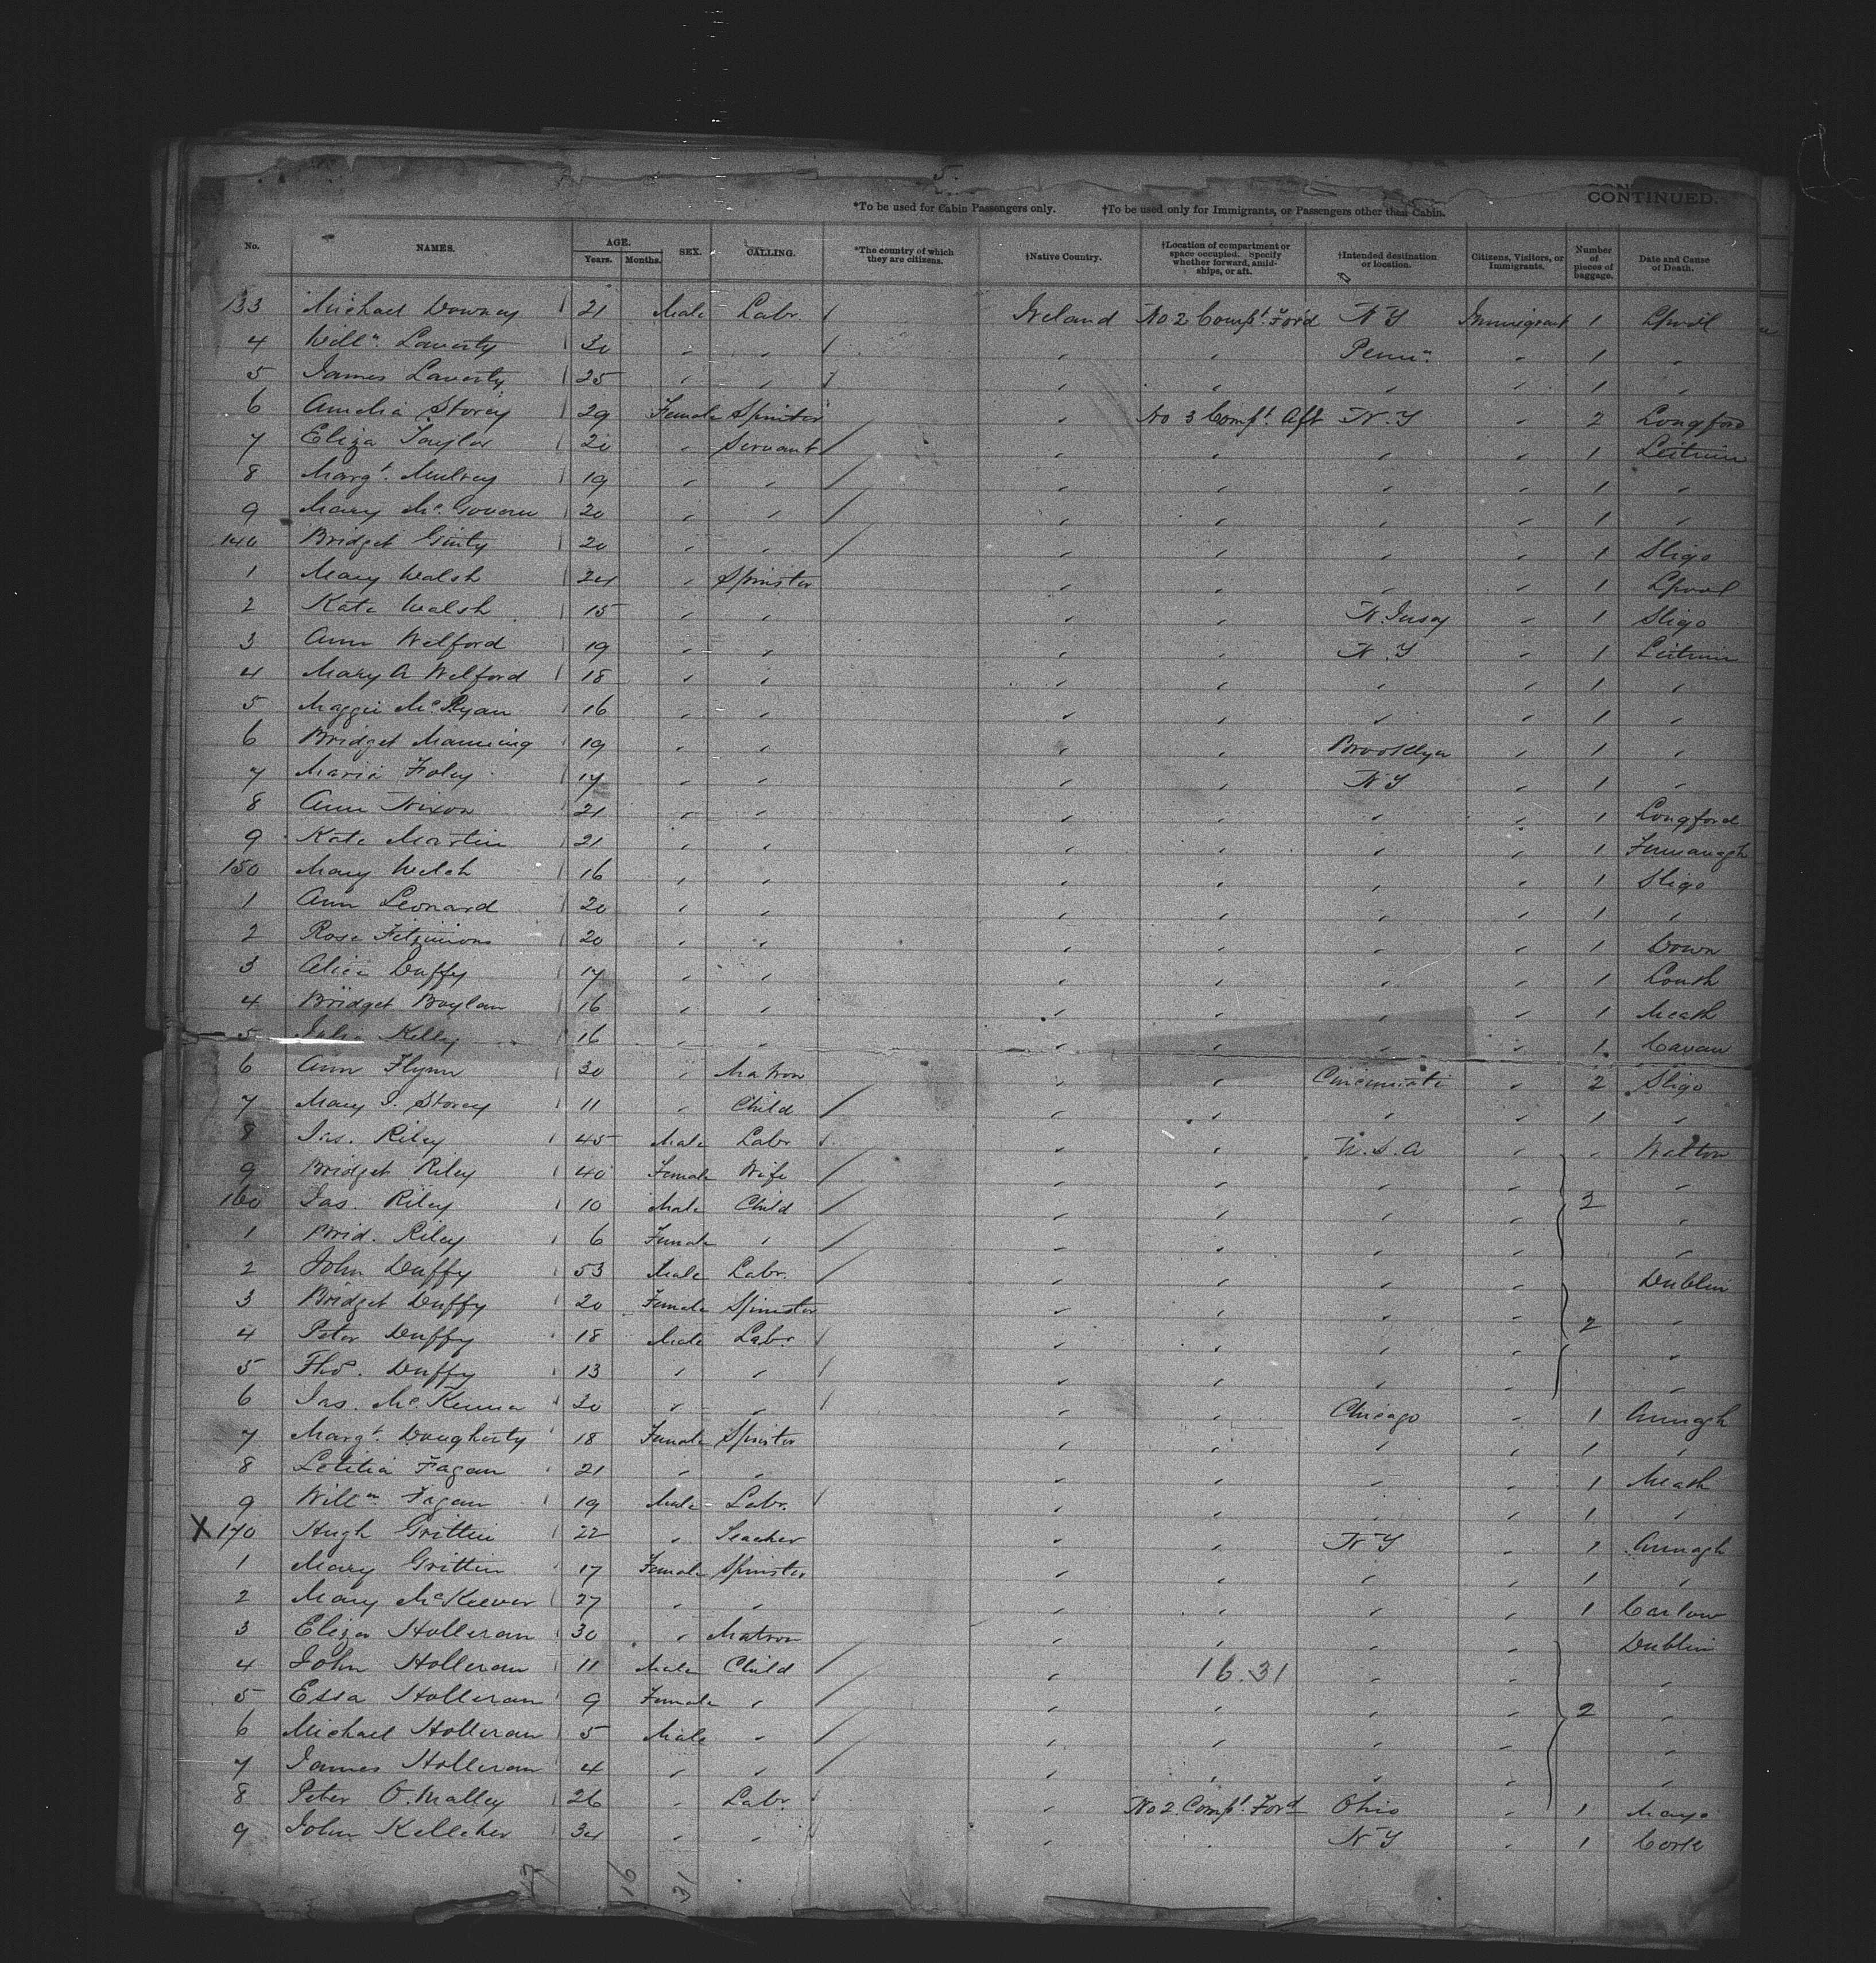 5.
CONTINUED.
*To be used for Cabin Passengers only. †To be used only for Immigrants, or Passengers other than Cabin.
No. NAMES. AGE. Years. Months. SEX. CALLING. *The country of which they are citizens. †Native Country. †Location of compartment or space occupied. Specify whether forward, amidships, or aft. †Intended destination or location. Citizens, Visitors, or Immigrants. Number of pieces of baggage. Date and Cause of Death.
133 Michael Downey 21 Male Labr. Ireland No 2 Compt. Ford N Y Immigrant 1 Lpool
4 Willm. Laverty 30 " " " " Penna. " 1 "
5 James Laverty 25 " " " " " " 1 "
6 Amelia Storey 29 Female Spinster " No 3 Compt. Aft N.Y " 2 Longford
7 Eliza Taylor 20 " Servant " " " " 1 Leitrim
8 Margt. Mulvey 19 " " " " " " 1 "
9 Mary Mc.Govern 20 " " " " " " 1 "
140 Bridget Ginty 20 " " " " " " 1 Sligo
1 Mary Walsh 24 " Spinster " " " " 1 Lpool
2 Kate Walsh 15 " " " " N. Jersey " 1 Sligo
3 Ann Welford 19 " " " " N.Y " 1 Leitrim
4 Mary A Welford 18 " " " " " " 1 "
5 Maggie Mc.Ryan 16 " " " " " " 1 "
6 Bridget Manning 19 " " " " Brooklyn " 1 "
7 Maria Foley 17 " " " " N Y " 1 "
8 Ann Nixon 21 " " " " " " 1 Longford
9 Kate Martin 21 " " " " " " 1 Fermanagh
150 Mary Welsh 16 " " " " " " 1 Sligo
1 Ann Leonard 20 " " " " " " 1 "
2 Rose Fitzimons 20 " " " " " " 1 Down
3 Alice Duffy 17 " " " " " " 1 Louth
4 Bridget Boylan 16 " " " " " " 1 Meath
5 Julia Kelly 16 " " " " " " 1 Cavan
6 Ann Flynn 30 " Matron " " Cincinnati " 2 Sligo
7 Mary J. Storey 11 " Child " " " " 1 "
8 Jas. Riley 45 Male Labr " " U.S.A " " Walton
9 Bridget Riley 40 Female Wife " " " " "
160 Jas. Riley 10 Male Child " " " " 3 "
1 Brid. Riley 6 Female " " " " " "
2 John Duffy 53 Male Labr. " " " " Dublin
3 Bridget Duffy 20 Female Spinster " " " " 2 "
4 Peter Duffy 18 Male Labr. " " " " "
5 Thos. Duffy 13 " " " " " " "
6 Jas. Mc.Kenna 20 " " " " Chicago " 1 Armagh
7 Margt. Dougherty 18 Female Spinster " " " " 1 "
8 Letitia Fagan 21 " " " " " " 1 Meath
9 Willm. Fagan 19 Male Labr. " " " " 1 "
X 170 Hugh Grittin 22 " Teacher " " N Y " 1 Armagh
1 Mary Grittin 17 Female Spinster " " " " 1 "
2 Mary McKeever 27 " " " " " " 1 Carlow
3 Eliza Holleran 30 " Matron " " " " Dublin
4 John Holleran 11 Male Child " 16.31 " " "
5 Essa Holleran 9 Female " " " " " 2 "
6 Michael Holleran 5 Male " " " " " "
7 James Holleran 4 " " " " " " "
8 Peter O.Malley 26 " Labr. " No 2 Compt. Ford Ohio " 1 Mayo
9 John Kelleher 34 " " " " N Y " 1 Cork
17 16 31